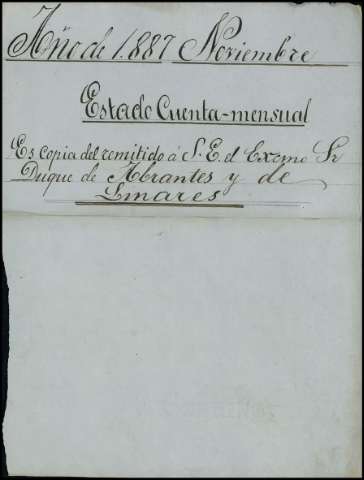 Año de 1.887 Noviembre
Estado Cuenta-mensual
Es copia del remitido á S. E. el Excmo Sr
Duque de Abrantes y de
Linares